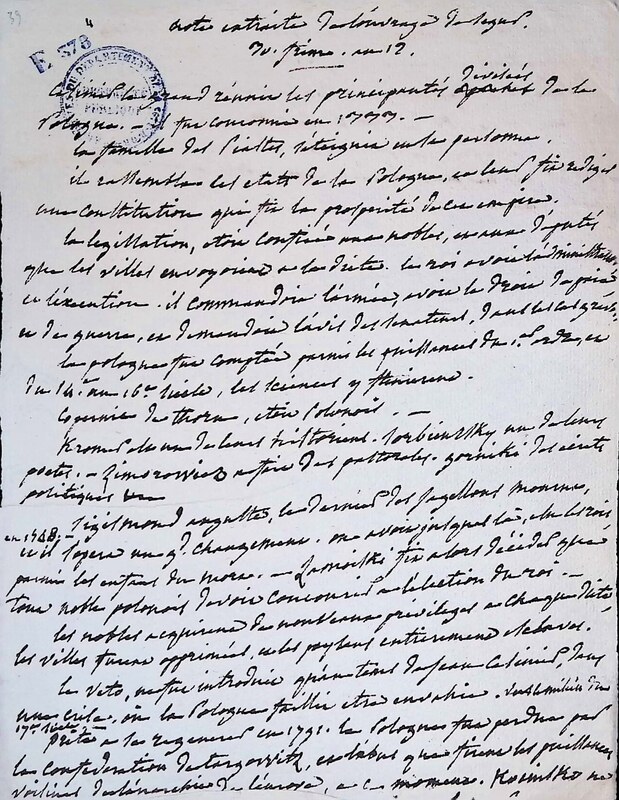 39
E 378
note extraite de l'ouvrage de Segur.
30. frimre. an 12.
Casimir le grand réunit les principautés divisées de la
Pologne. — fut couronné en 1333. —
la famille des Piastes, s'éteignit en sa personne.
il rassembla les etats de la Pologne, et leur fit rediger
une constitution qui fit la prosperité de cet empire.
la legislation, etoit confiée aux nobles, et aux députés
que les villes envoyoient a la diete. le roi avoit l'administration
et l'éxecution. il commandoit l'armée, avoit le droit de paix
et de guerre, et demandoit l'avis des senateurs, dans les cas graves.
la pologne fut comptée parmi les puissances du 1er ordre, et
du 14e au 16e siecle, les sciences y fleurirent.
Copernic de thorn, etoit Polonois. —
Kromer est un de leurs historiens. Sorbieusky un de leurs
poetes. — Zimorowicz a fait des pastorales. gornicki des écrits
politiques &a
en 1548. — Sigismond auguste, le dernier des Jagellons mourut,
et il s'opera un gd. changement. on avoit jusques là, élu les rois
parmi les enfans du mort. — Zamoiski fit alors décider que
tout noble polonois devoit concourir a l'élection du roi. —
les nobles acquirent de nouveaux privileges a chaque diete
les villes furent opprimées, et les paysans entierement esclaves.
le veto, ne fut introduit qu'au tems de Jean Casimir, dans
un siecle, où la Pologne faillit etre envahie. vers le milieu du
17e siecle.
Prête a se regenerer en 1791. la Pologne fut perdue par
la confederation de targowitz, et l'abus que firent les puissances
voisines de l'anarchie de l'europe, a ce moment. Kosciusko ne